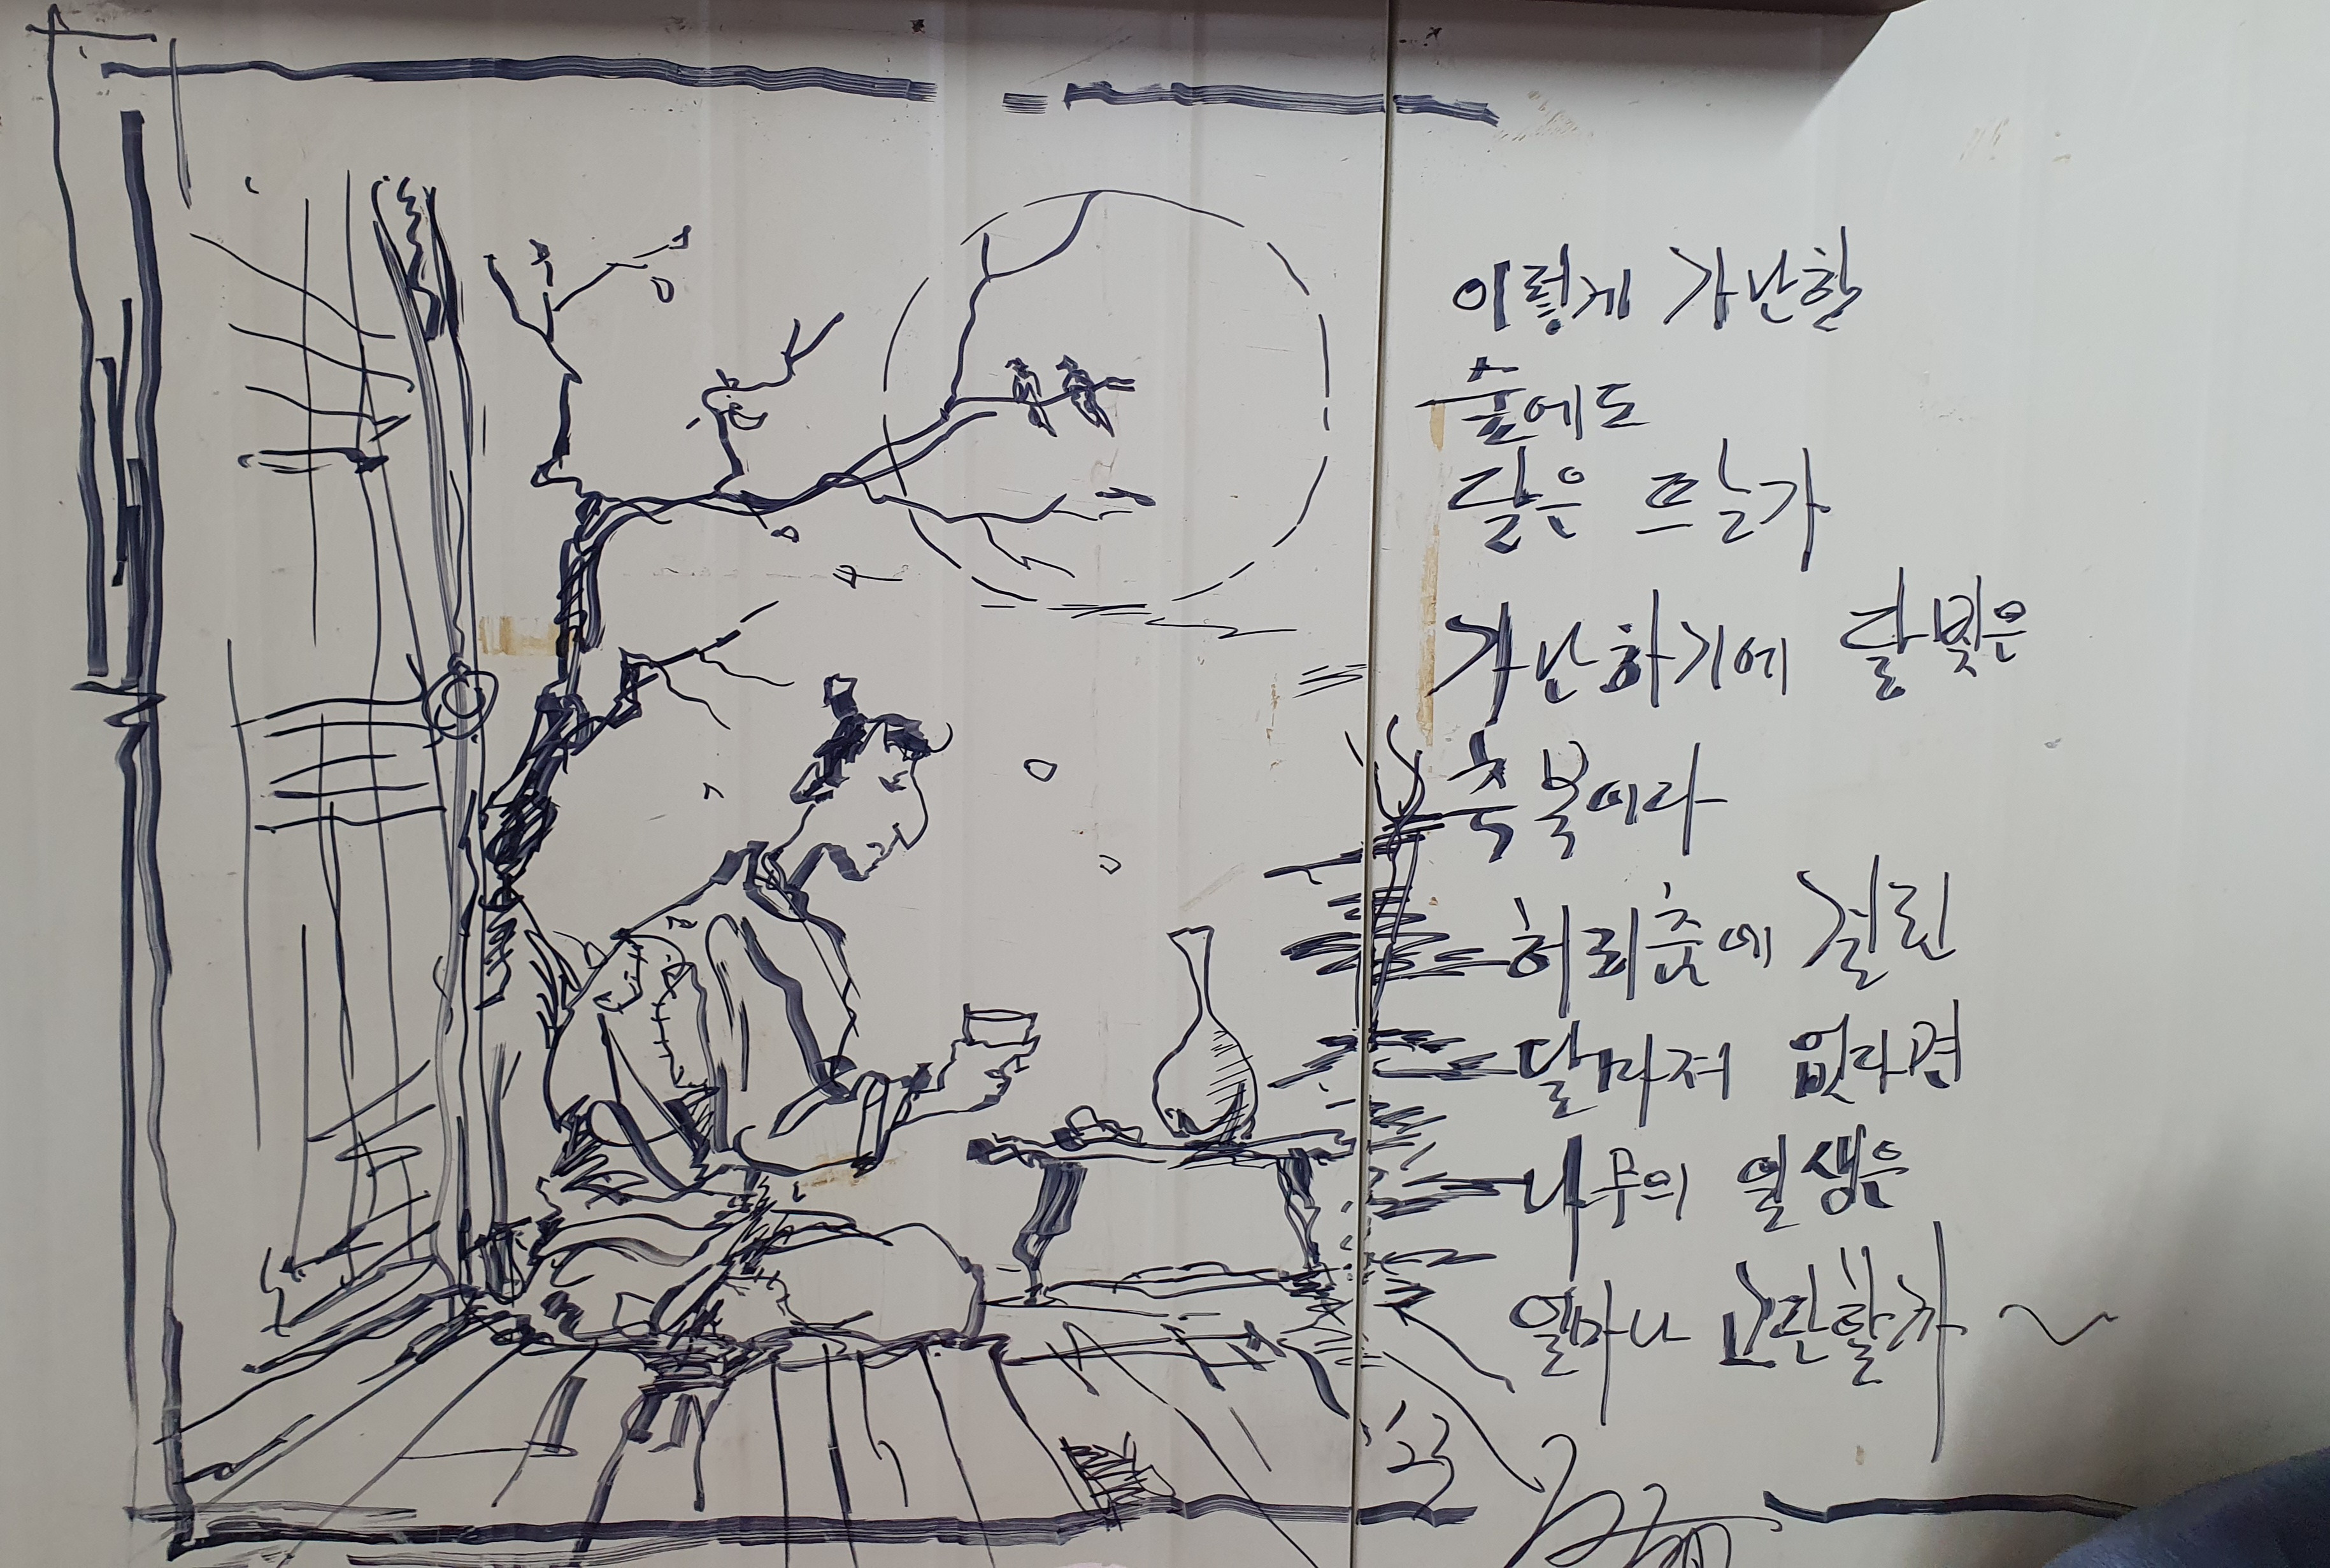 이렇게 가난한
숲에도
달은 뜨는가
가난하기에 달빛은
축복이라
허리춤에 걸린
달마저 없다면
나무의 일생은
얼마나 고단할까~
'23